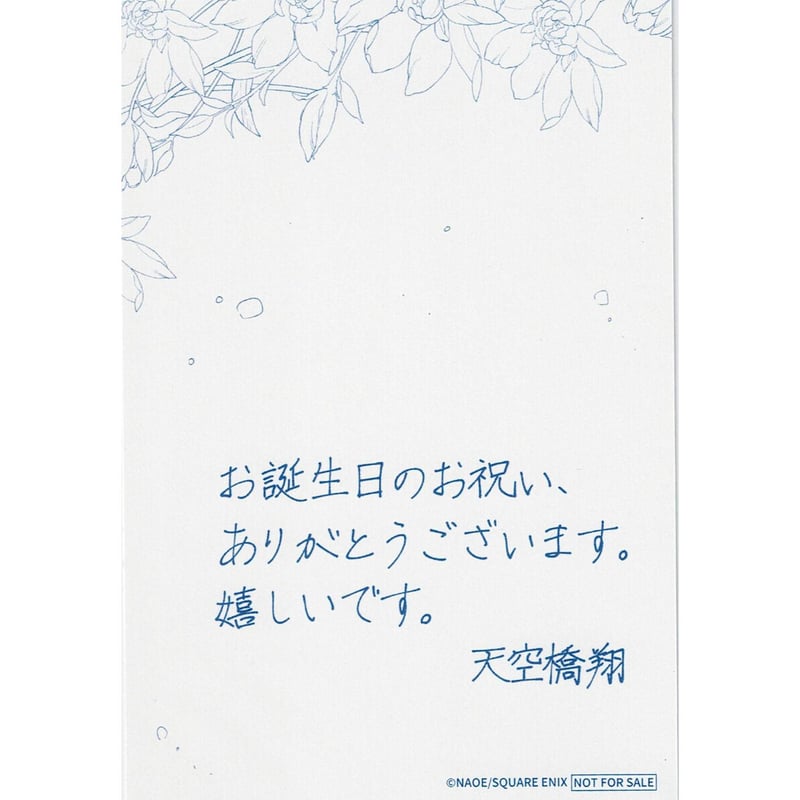 お誕生日のお祝い、
ありがとうございます。
嬉しいです。
天空橋翔
©NAOE/SQUARE ENIX NOT FOR SALE